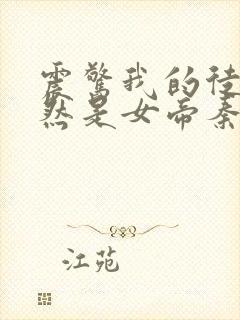 震惊我的徒
然是女帝秦
江苑